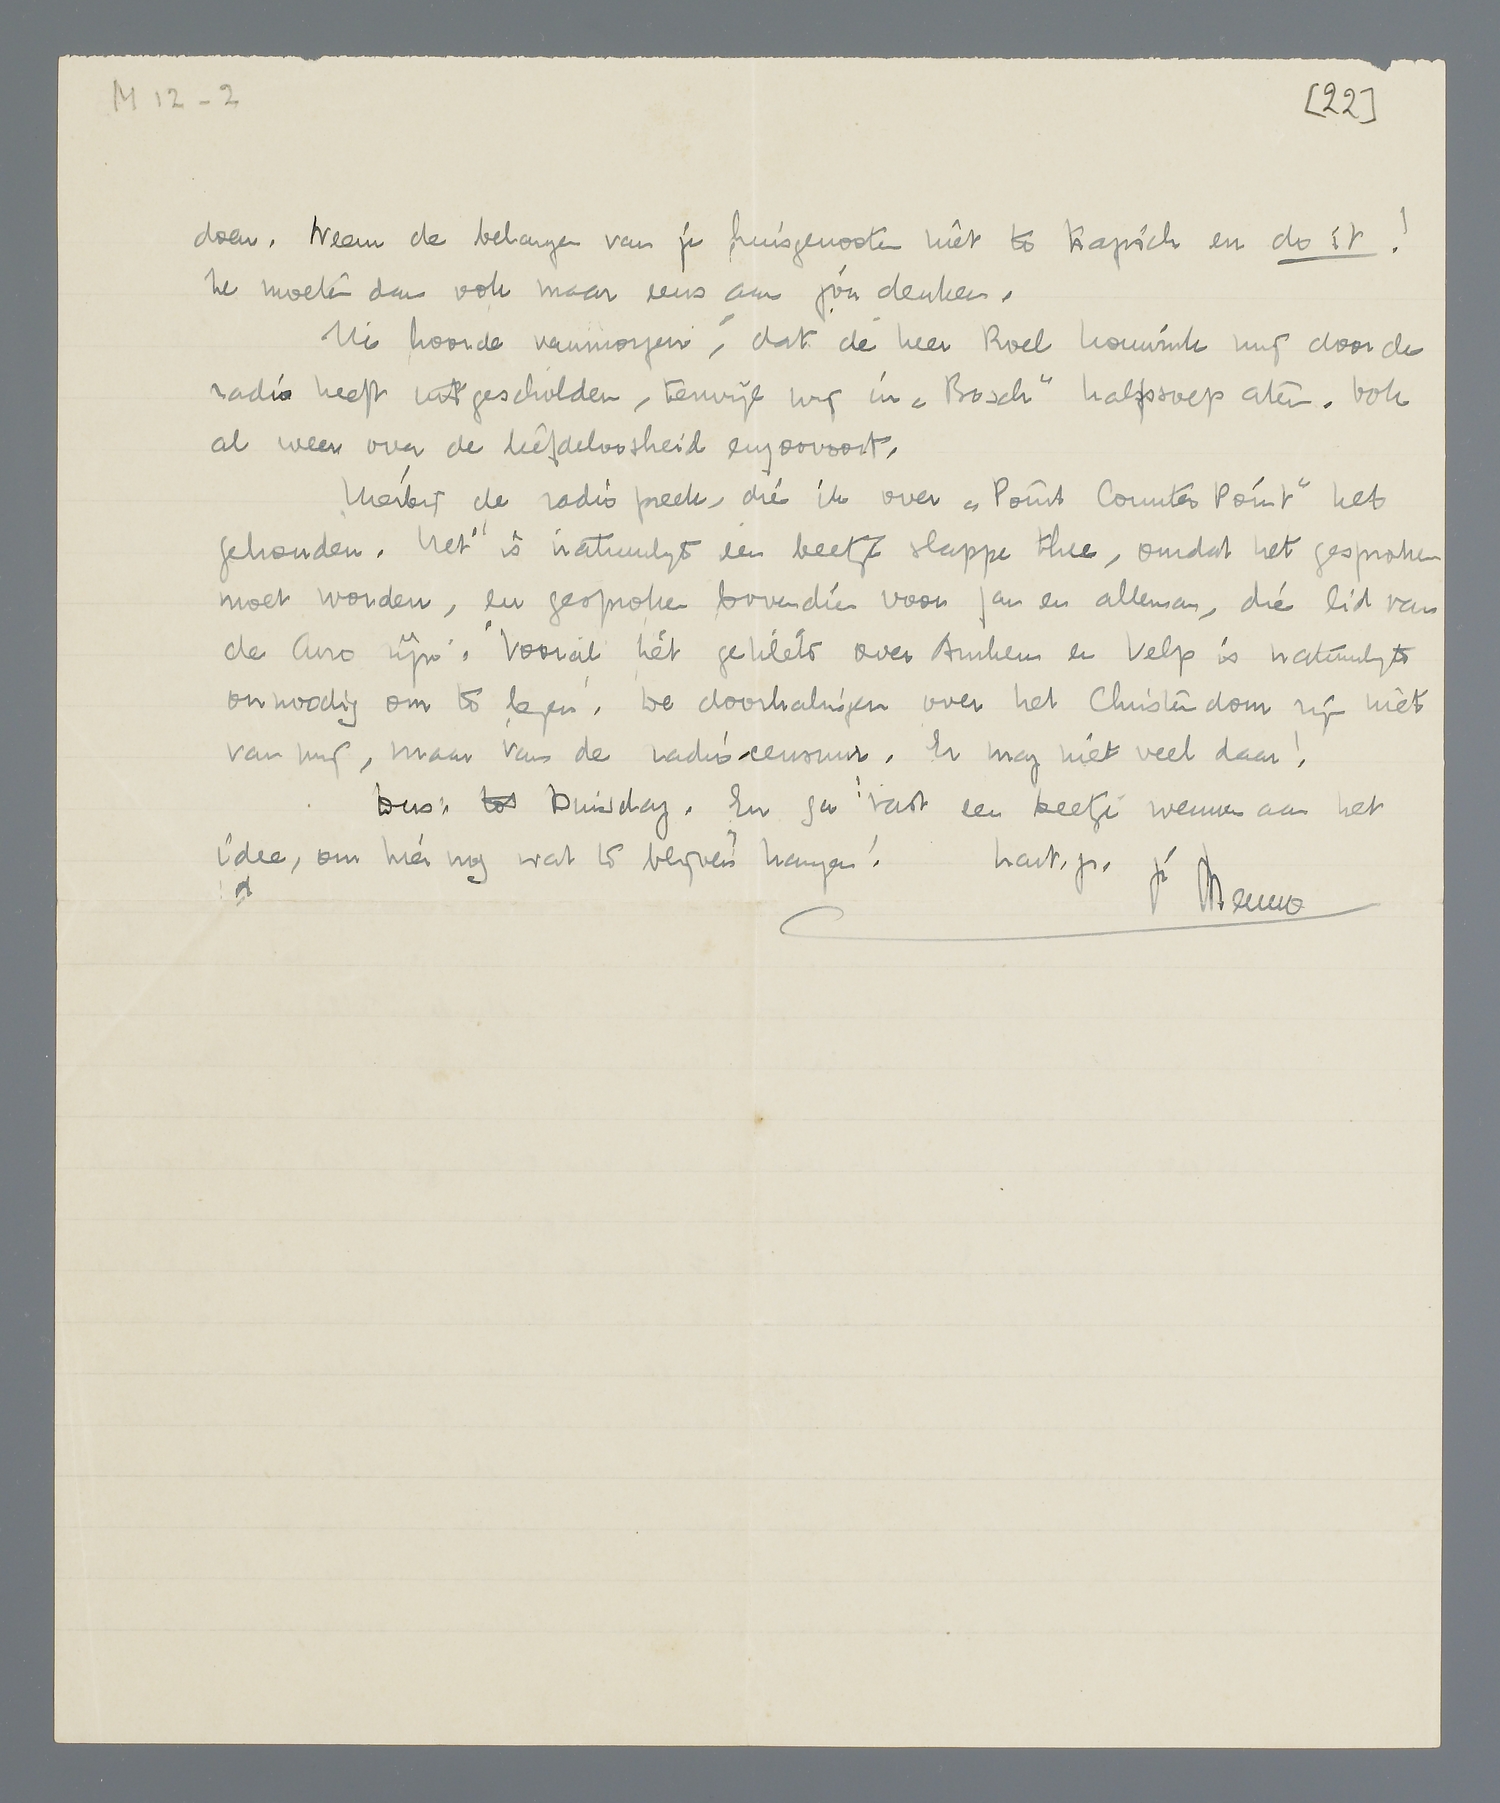 M 12 - 2
[22]
doen. Neem de belangen van je huisgenooten niet te tragisch en do it!
Ze moeten dan ook maar eens aan jou denken.
Wie hoorde vanmorgen, dat de heer Roel Houwink mij door de
radio heeft uitgescholden, terwijl wij in „Bosch" kalfssoep aten. Ook
al weer over de liefdeloosheid enzoovoort.
Hierbij de radiopreek, die ik over „Point Counter Point" heb
gehouden. Het is natuurlijk een beetje slappe thee, omdat het gesproken
moet worden, en gesproken bovendien voor Jan en alleman, die lid van
de Avro zijn. Vooral het geklets over Arnhem en Velp is natuurlijk
onnoodig om te lezen. De doorhalingen over het Christendom zijn niet
van mij, maar van de radiocensuur. Er mag niet veel daar!
Dus: tot Dinsdag. En ga vast een beetje wennen aan het
idee, om hier nog wat te blijven hangen! hart. gr. je Menno